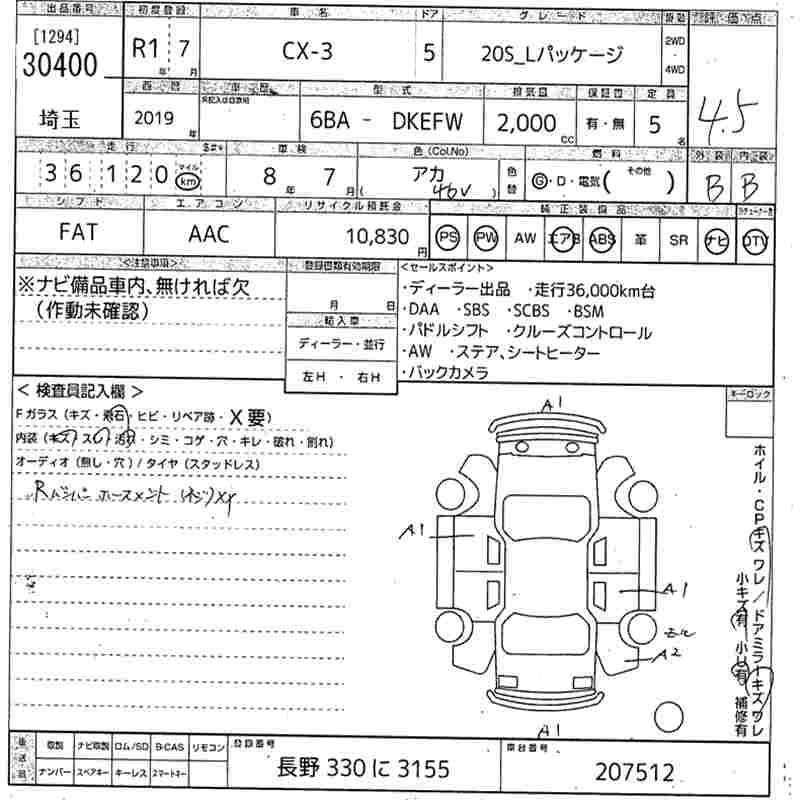 出品番号 初度登録 車名 ドア グレード 評価点
[1294]
30400
R1 年 7 月
CX-3 5 20S_Lパッケージ
2WD
・
4WD
4.5
西暦 車歴 型式 排気量 保証書 定員
埼玉 2019 年 6BA - DKEFW 2,000 CC 有・無 5 名
走行 車検 色(Col.No) 燃料 外装 内装
36,120 マイル km
8 年 7 月
アカ
( 46V )
色替
G・D・電気( その他 )
B B
シフト エアコン リサイクル預託金 純正装備品
FAT AAC 10,830 円
PS PW AW エアB ABS 革 SR ナビ DTV
<注意事項> 登録書類有効期限 <セールスポイント>
※ナビ備品車内、無ければ欠
(作動未確認)
月 日
輸入車
ディーラー・並行
左H ・ 右H
・ディーラー出品 ・走行36,000km台
・DAA ・SBS ・SCBS ・BSM
・パドルシフト ・クルーズコントロール
・AW ・ステア、シートヒーター
・バックカメラ
< 検査員記入欄 > キーロック
Fガラス(キズ・飛石・ヒビ・リペア跡・X要)
内装(キズ・スレ・汚れ・シミ・コゲ・穴・キレ・破れ・割れ)
オーディオ(無し・穴)/タイヤ(スタッドレス)
A1
A1
A1
A2
A1
ホイル・CPキズ ワレ/ドアミラーキズワレ
小キズ有 小U有 補修有
後送品 取説 ナビ取説 ロム/SD B-CAS リモコン
ナンバー スペアキー キーレス スマートキー
登録番号
長野 330 に 3155
車台番号
207512